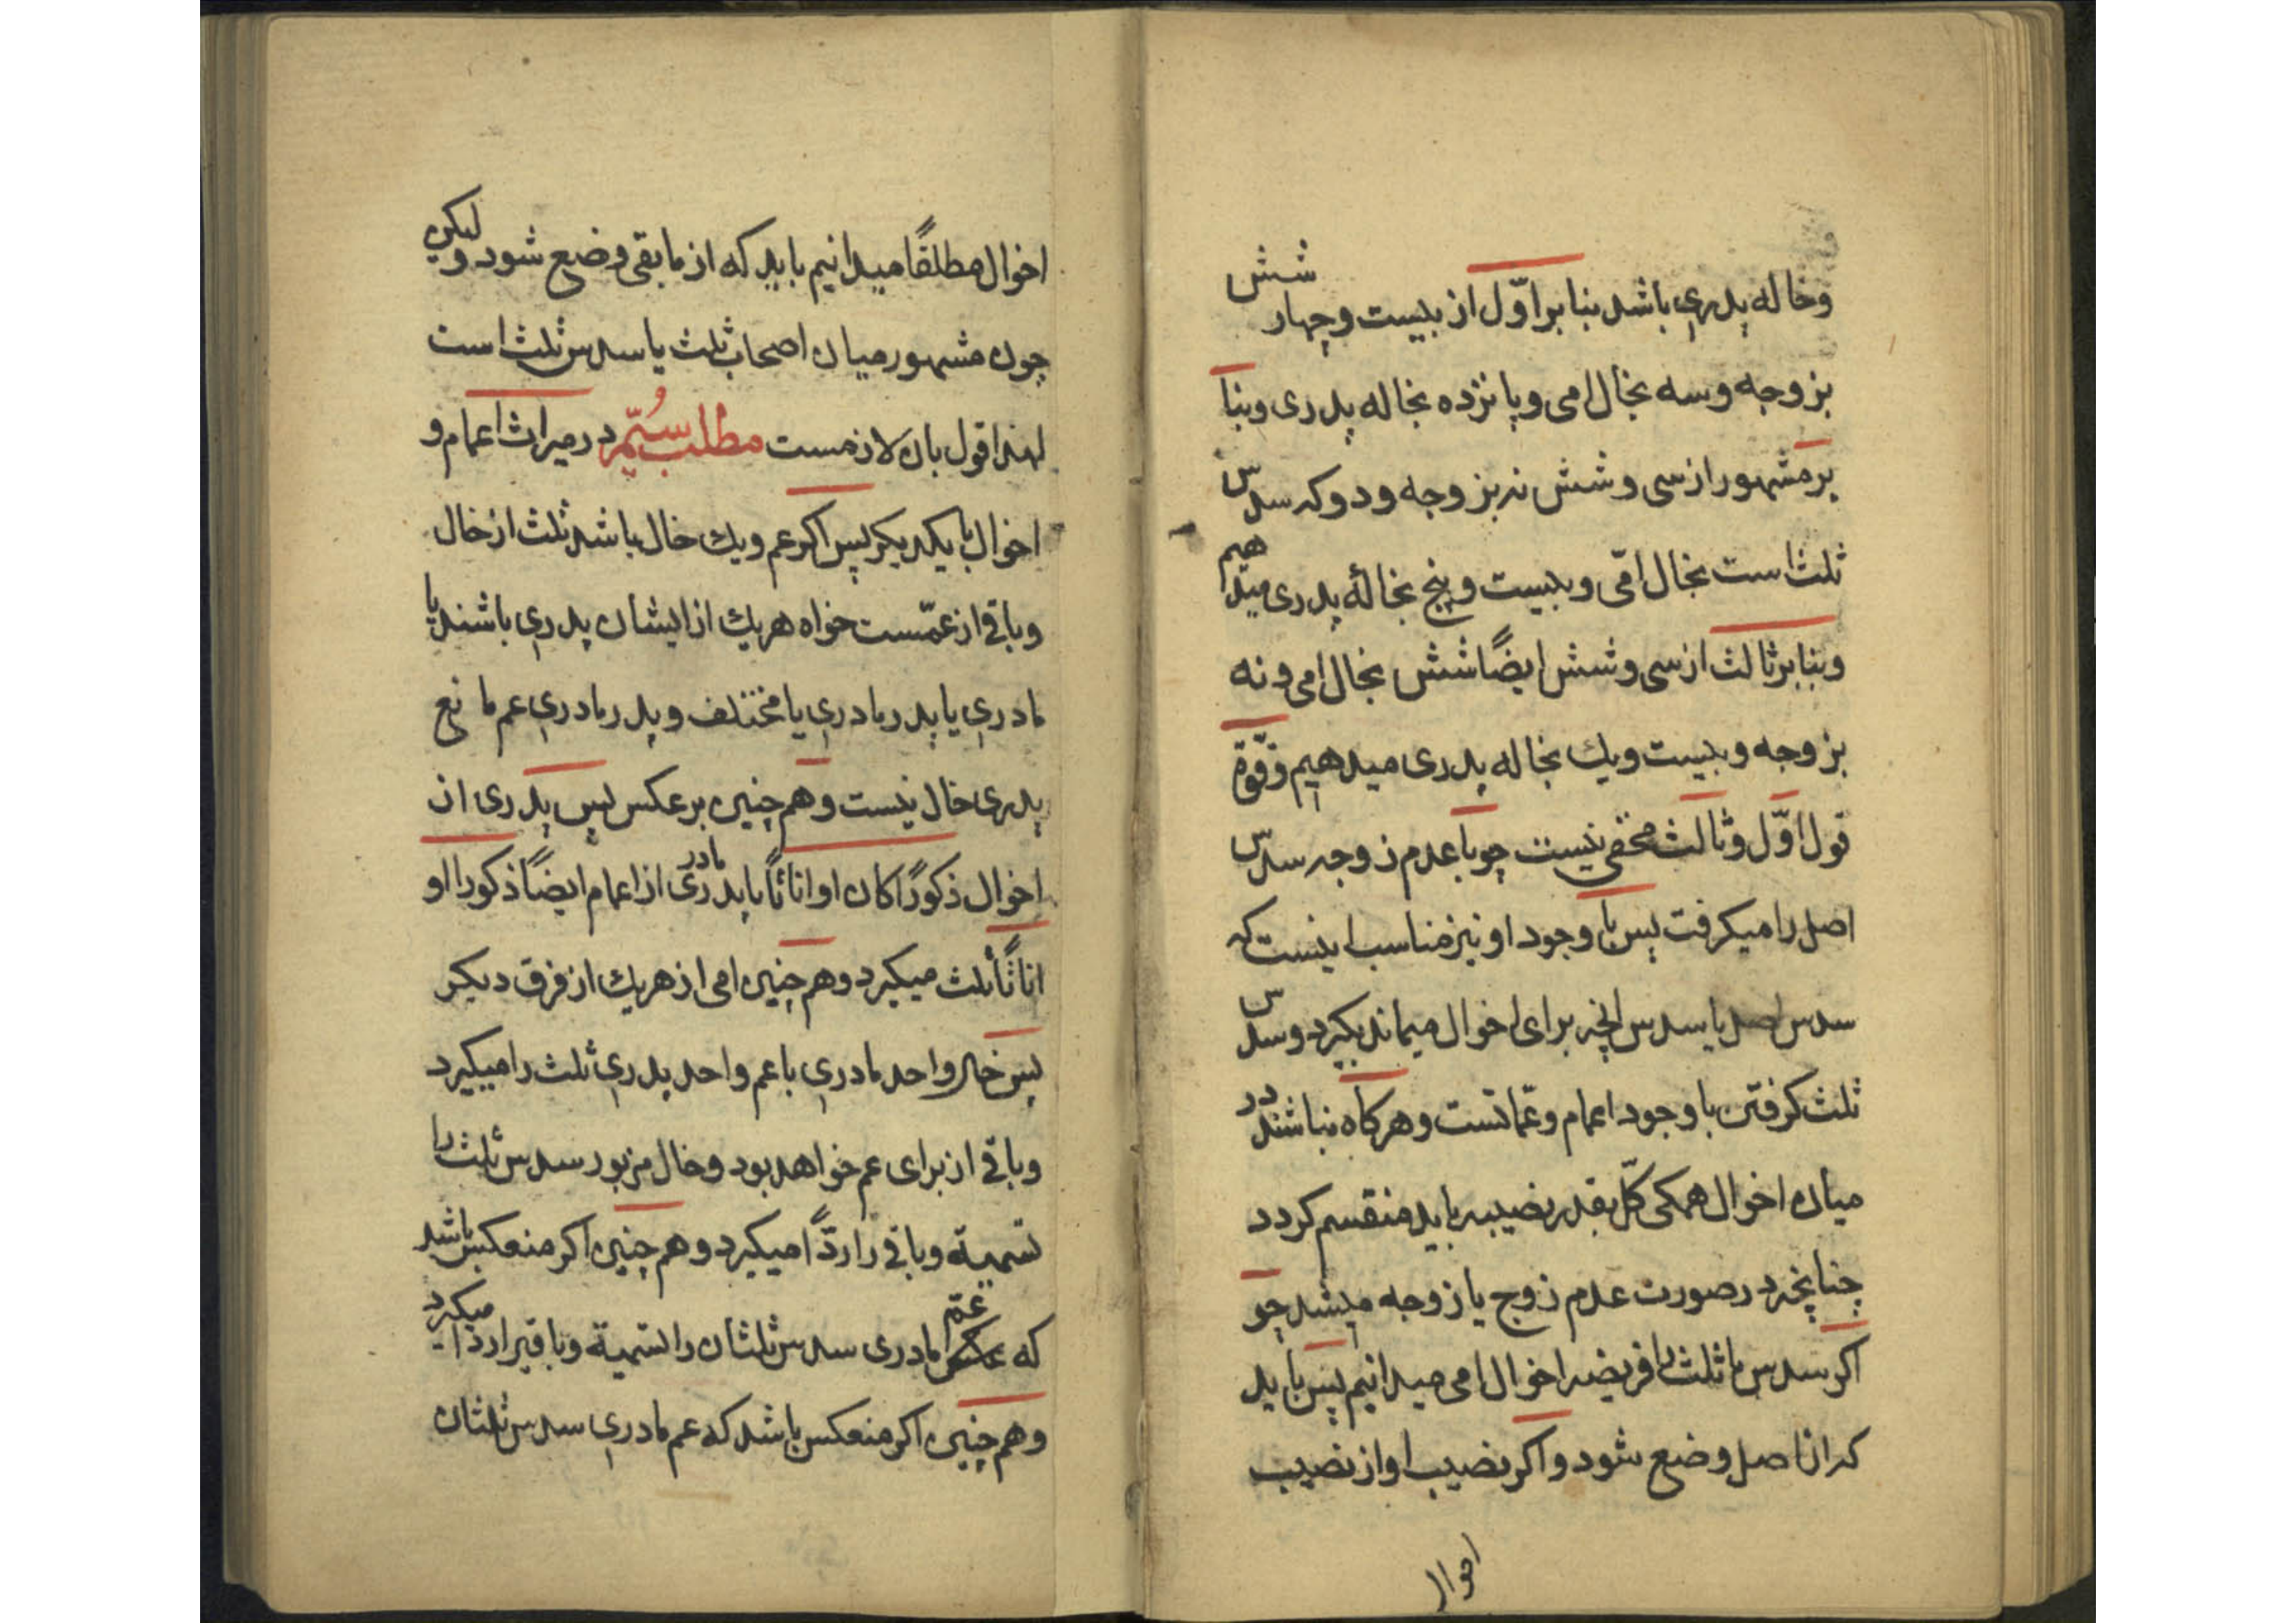 وخاله پدری باشد بنا بر اوّل از بیست و چهار شش
بزوجه و سه بخال امی و پانزده بخاله پدری و بنا
بر مشهور از سی و شش نه بزوجه و دو که سدس
ثلث است بخال امّی و بیست و پنج بخالۀ پدری میدهیم
و بنا بر ثالث از سی و شش ایضًا شش بخال امی و نه
بزوجه و بیست و یك بخاله پدری میدهیم و قوّة
قول اوّل و ثالث مخفی نیست چو با عدم زوجه سدس
اصل را میکرفت پس با وجود او نیز مناسب اینست که
سدس اصل یا سدس آنچه برای اخوال میماند بکیرد و سدس
ثلث کرفتن با وجود اعمام و عمّاتست و هرکاه نباشند در
میان اخوال همکی کلّ بقدر نصیبه باید منقسم کردد
چنانچه در صورت عدم زوج یا زوجه میشد چو
اکر سدس یا ثلث را فریضه اخوال امی میدانیم پس باید
که از اصل وضع شود و اکر نصیب او از نصیب
اخوال
اخوال مطلقًا میدانیم باید که از مابقی وضع شود و لیکن
چون مشهور میان اصحاب ثلث یا سدس ثلث است
لهذا قول بان لازمست مطلب سُیّم در میراث اعمام و
اخوال با یکدیکر پس اکر عم و یك خال باشد ثلث از خال
و باقی از عمّست خواه هریك از ایشان پدری باشند یا
مادری یا پدر مادری یا مختلف و پدر مادری عم مانع
پدری خال نیست و هم چنین بر عکس پس پدری از
اخوال ذکورًا کان او اناثًا با پدر مادری از اعمام ایضًا ذکورا او
اناثًا ثلث میکیرد و هم چنین امی از هریك از فرق دیکر
پس خال واحد مادری با عم واحد پدری ثلث را میکیرد
و باقی از برای عم خواهد بود و خال مزبور سدس ثلث را
تسمیة و باقی را ردًّا میکیرد و هم چنین اکر منعکس باشد
که عم مادری سدس ثلثان را تسمیة و باقیرا ردا میکیرد
و هم چنین اکر منعکس باشد که عم مادری سدس ثلثان